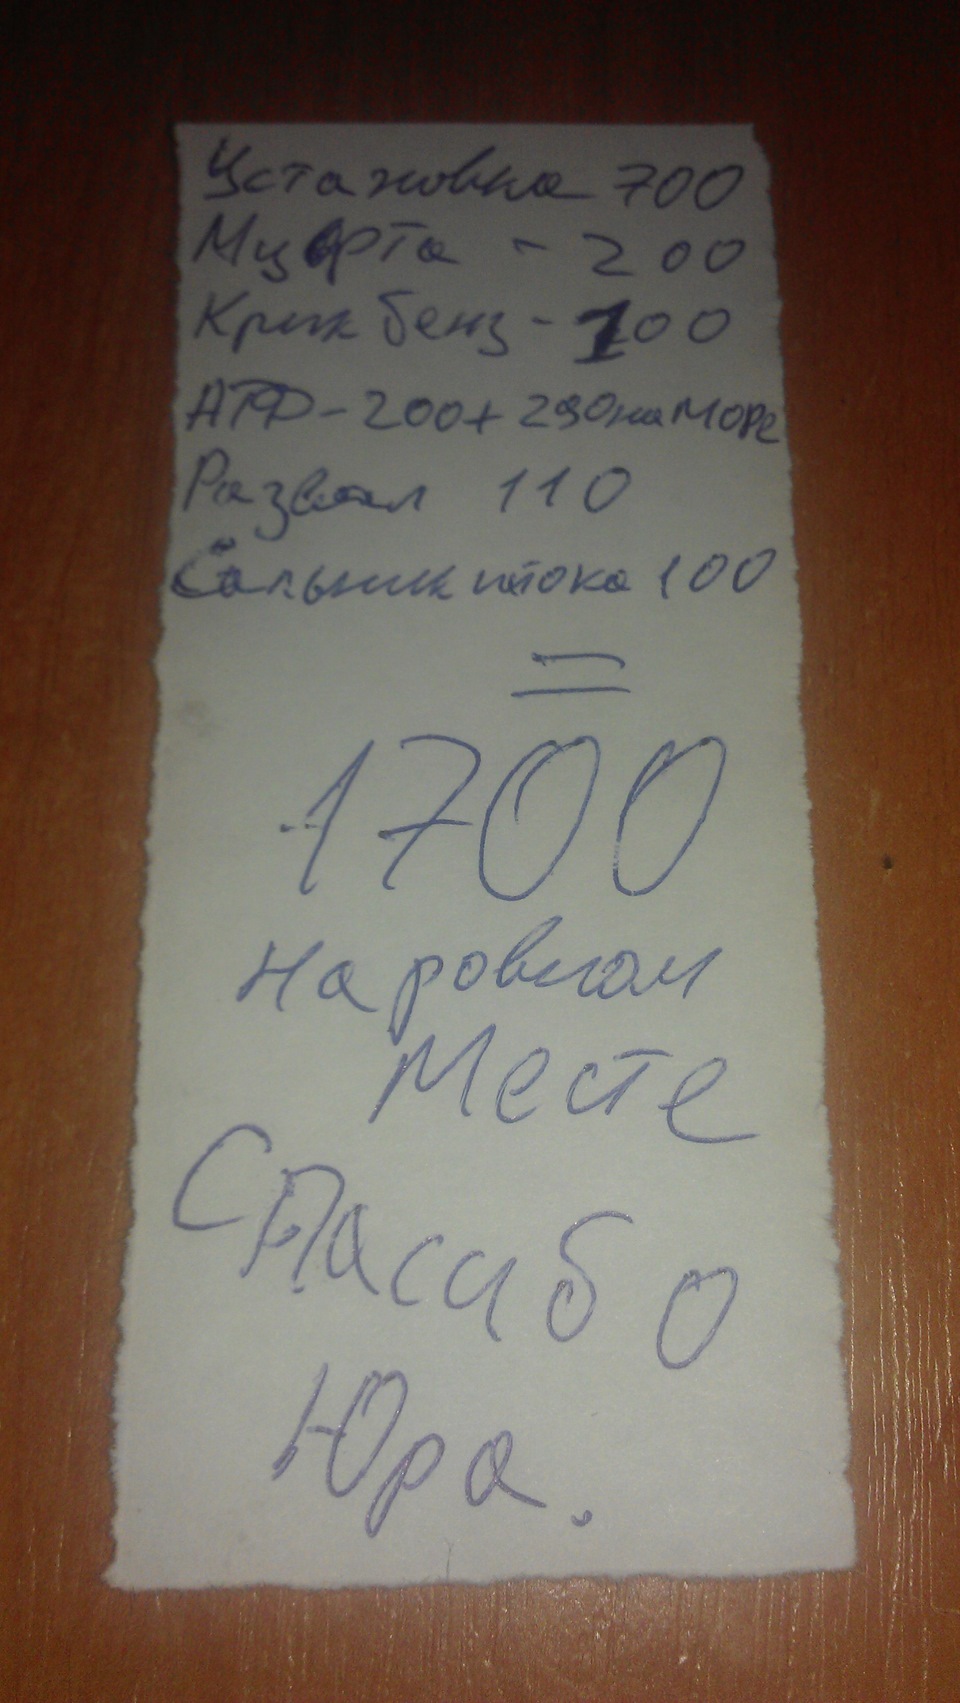 Установка 700
Муфта - 200
Крюк бенз - 100
АТФ - 200 + 290 на море
Развал 110
Сальник штока 100
=
1700
на ровном
месте
Спасибо
Юра.